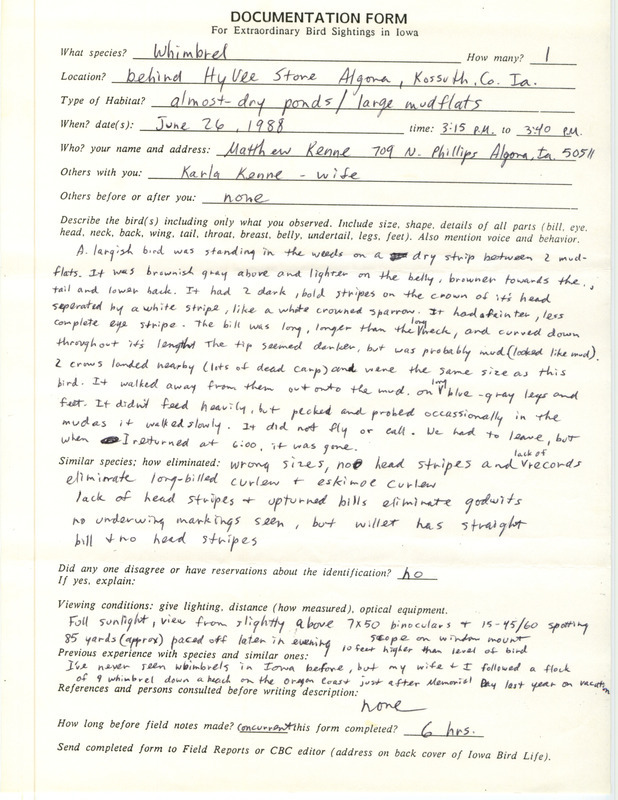 DOCUMENTATION FORM
For Extraordinary Bird Sightings in Iowa
What species? Whimbrel How many? 1
Location? behind HyVee Store Algona, Kossuth Co. Ia.
Type of Habitat? almost-dry ponds / large mudflats
When? date(s): June 26, 1988 time: 3:15 P.M. to 3:40 P.M.
Who? your name and address: Matthew Kenne 709 N. Phillips Algona, Ia. 50511
Others with you: Karla Kenne - wife
Others before or after you: none
Describe the bird(s) including only what you observed. Include size, shape, details of all parts (bill, eye,
head, neck, back, wing, tail, throat, breast, belly, undertail, legs, feet). Also mention voice and behavior.
A largish bird was standing in the weeds on a dry strip between 2 mud-
flats. It was brownish gray above and lighter on the belly, browner towards the
tail and lower back. It had 2 dark, bold stripes on the crown of it's head
seperated by a white stripe, like a white crowned sparrow. It had a fainter, less
complete eye stripe. The bill was long, longer than the long neck, and curved down
throughout it's length. The tip seemed darker, but was probably mud (looked like mud).
2 crows landed nearby (lots of dead carp) and were the same size as this
bird. It walked away from them out onto the mud. on long blue-gray legs and
feet. It didn't feed heavily, but pecked and probed occassionally in the
mud as it walked slowly. It did not fly or call. We had to leave, but
when I returned at 6:00, it was gone.
Similar species; how eliminated: wrong sizes, no head stripes and lack of records
eliminate long-billed curlew + eskimoe curlew
lack of head stripes + upturned bills eliminate godwits
no underwing markings seen, but willet has straight
bill + no head stripes
Did any one disagree or have reservations about the identification? no
If yes, explain:
Viewing conditions: give lighting, distance (how measured), optical equipment.
Full sunlight, view from slightly above 7x50 binoculars + 15-45/60 spotting
85 yards (approx) paced off later in evening scope on window mount
10 feet higher than level of bird
Previous experience with species and similar ones:
I've never seen whimbrels in Iowa before, but my wife + I followed a flock
of 9 whimbrel down a beach on the Oregon coast just after Memorial Day last year on vacation
References and persons consulted before writing description:
none
How long before field notes made? concurrent this form completed? 6 hrs.
Send completed form to Field Reports or CBC editor (address on back cover of Iowa Bird Life).